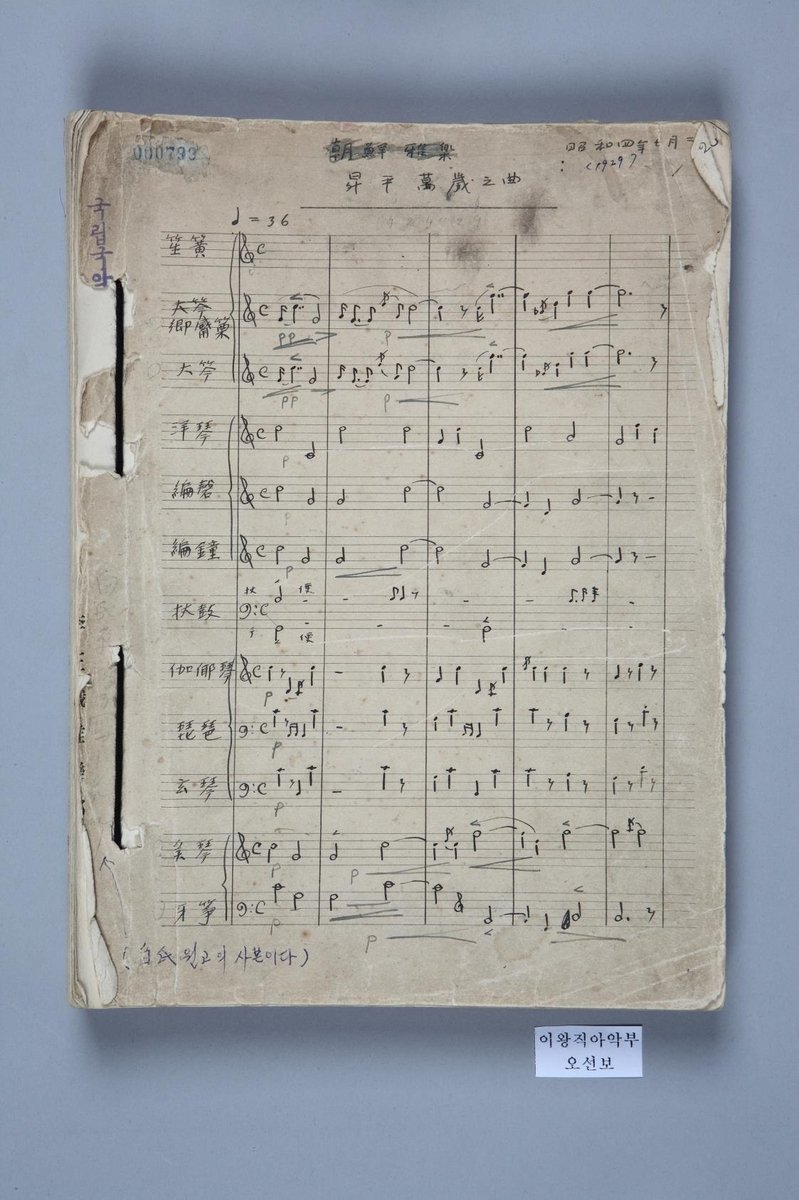 000793
朝鮮雅樂
昭和四年七月
(1929)
昇平萬歲之曲
국립국악
♩ = 36
笙簧
大笒
鄕觱篥
大笒
洋琴
編磬
編鐘
杖鼓
伽倻琴
琵琶
玄琴
奚琴
牙箏
pp
pp
p
p
p
白氏 원고의 사본이다)
이왕직아악부
오선보